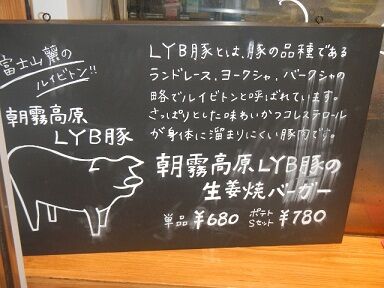 富士山麓の
ルイビトン!!
朝霧高原
LYB豚
LYB豚とは、豚の品種である
ランドレース、ヨークシャ、バークシャの
略でルイビトンと呼ばれています。
さっぱりとした味わいかつコレステロール
が身体に溜まりにくい豚肉です。
朝霧高原LYB豚の
生姜焼バーガー
単品 ¥680 ポテトSセット ¥780